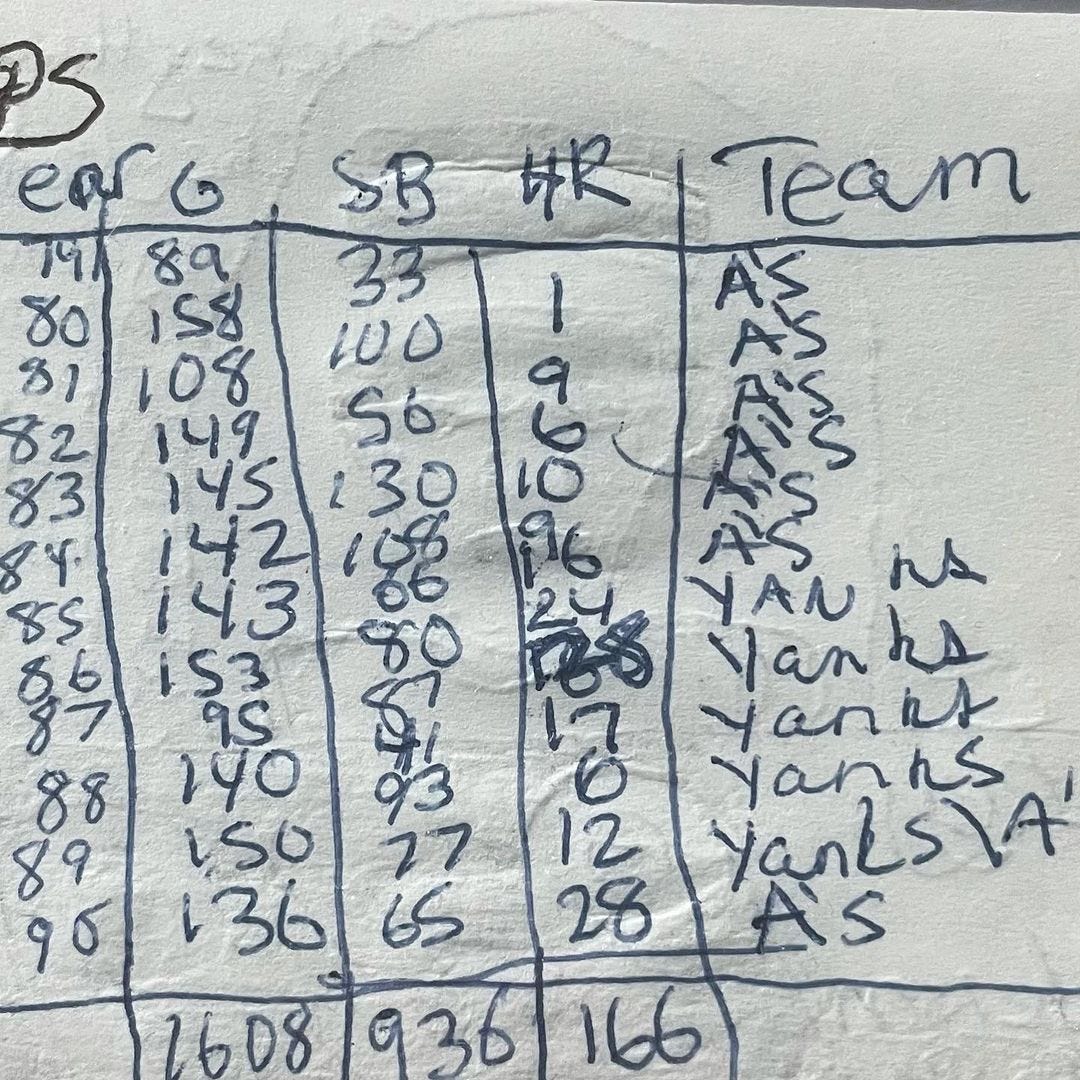 PS
ear G SB HR Team
79 89 33 1 A'S
80 158 100 9 A'S
81 108 56 6 A'S
82 149 130 10 A'S
83 145 108 9 A'S
84 142 66 16 A'S
85 143 80 24 YANKS
86 153 87 28 Yanks
87 95 41 17 Yanks
88 140 93 6 Yanks
89 150 77 12 Yanks\A'
90 136 65 28 A'S
1608 936 166